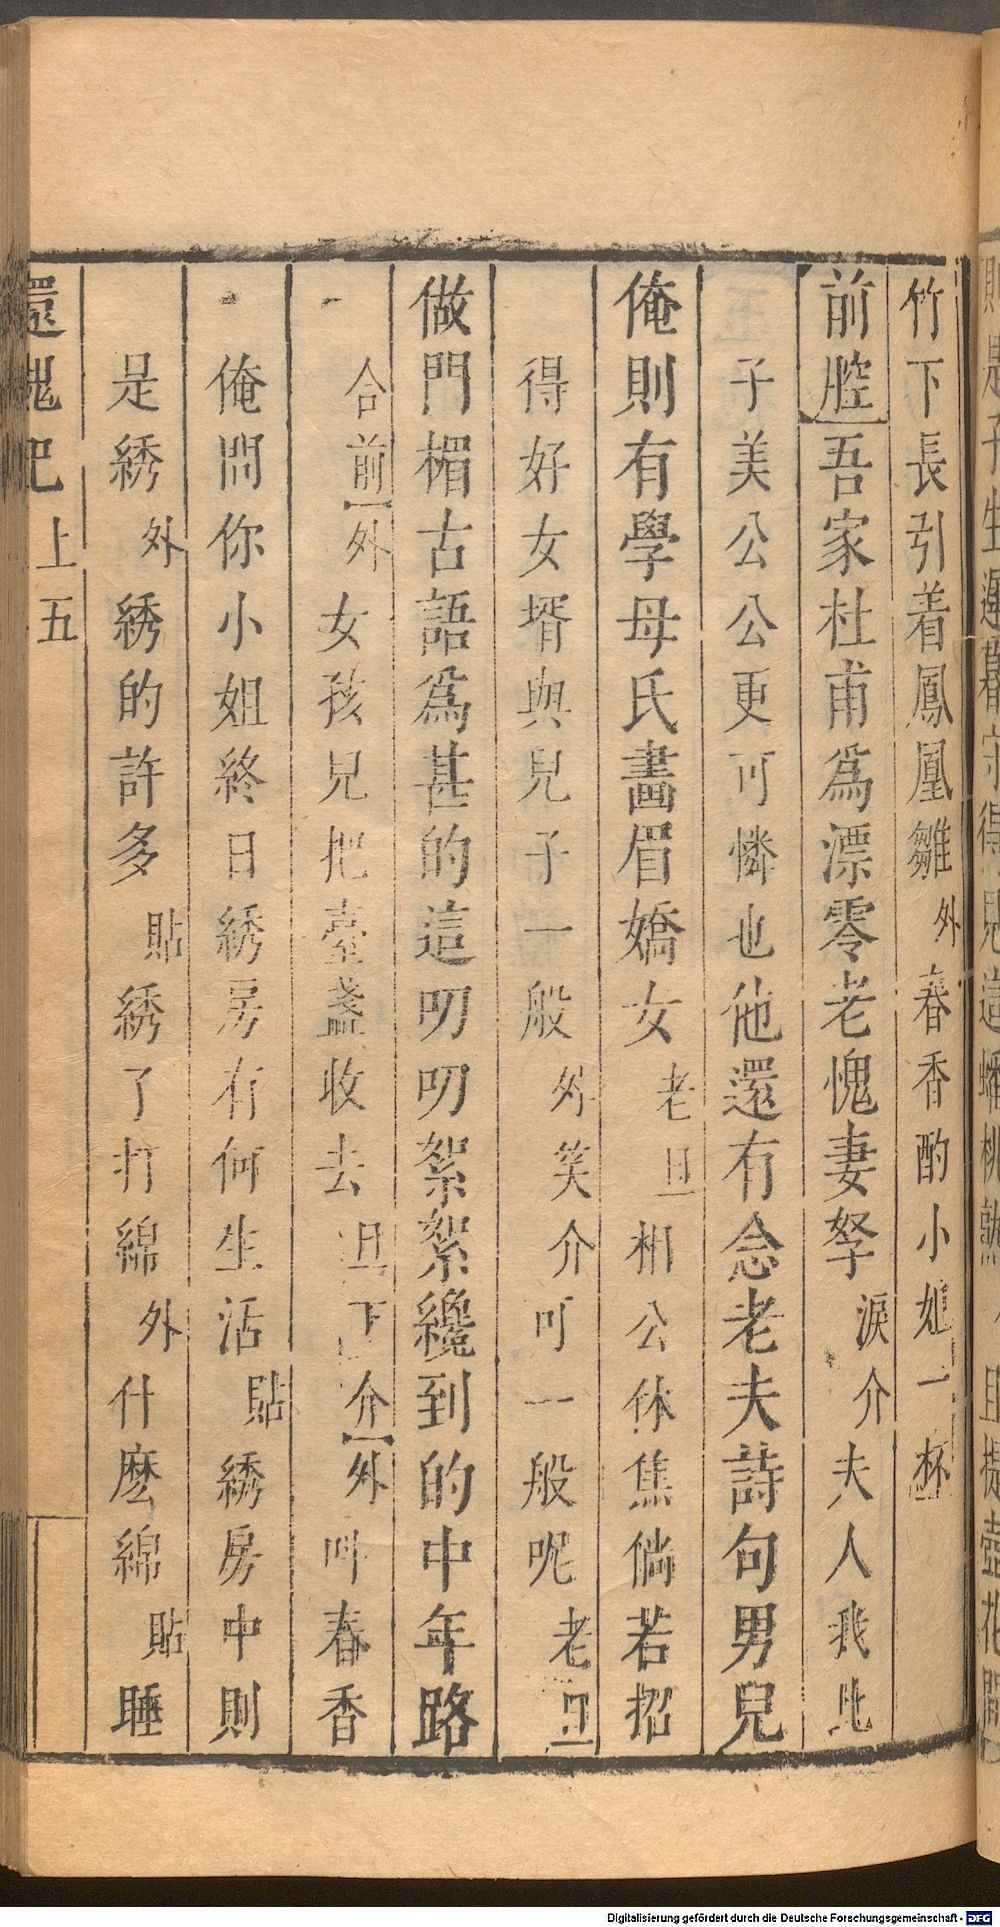 竹下長引着鳳凰雛外春香酌小姐一杯
前腔吾家杜甫爲漂零老愧妻孥淚介夫人我比
子美公公更可憐也他還有念老夫詩句男兒
俺則有學母氏畫眉嬌女老旦相公休焦倘若招
得好女壻與兒子一般外笑介可一般呢老旦
做門楣古語爲甚的這叨叨絮絮纔到的中年路
合前外女孩兒把臺盞收去旦下介外叫春香
俺問你小姐終日綉房有何生活貼綉房中則
是綉外綉的許多貼綉了打綿外什麽綿貼睡
還魂記 上 五
Digitalisierung gefördert durch die Deutsche Forschungsgemeinschaft - DFG